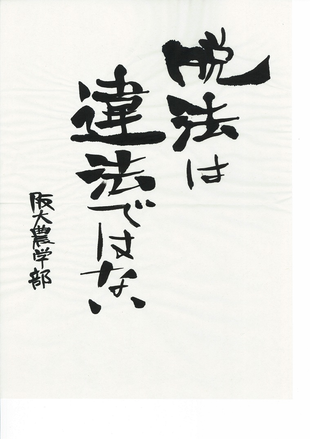 脱法は
違法ではない
阪大農学部